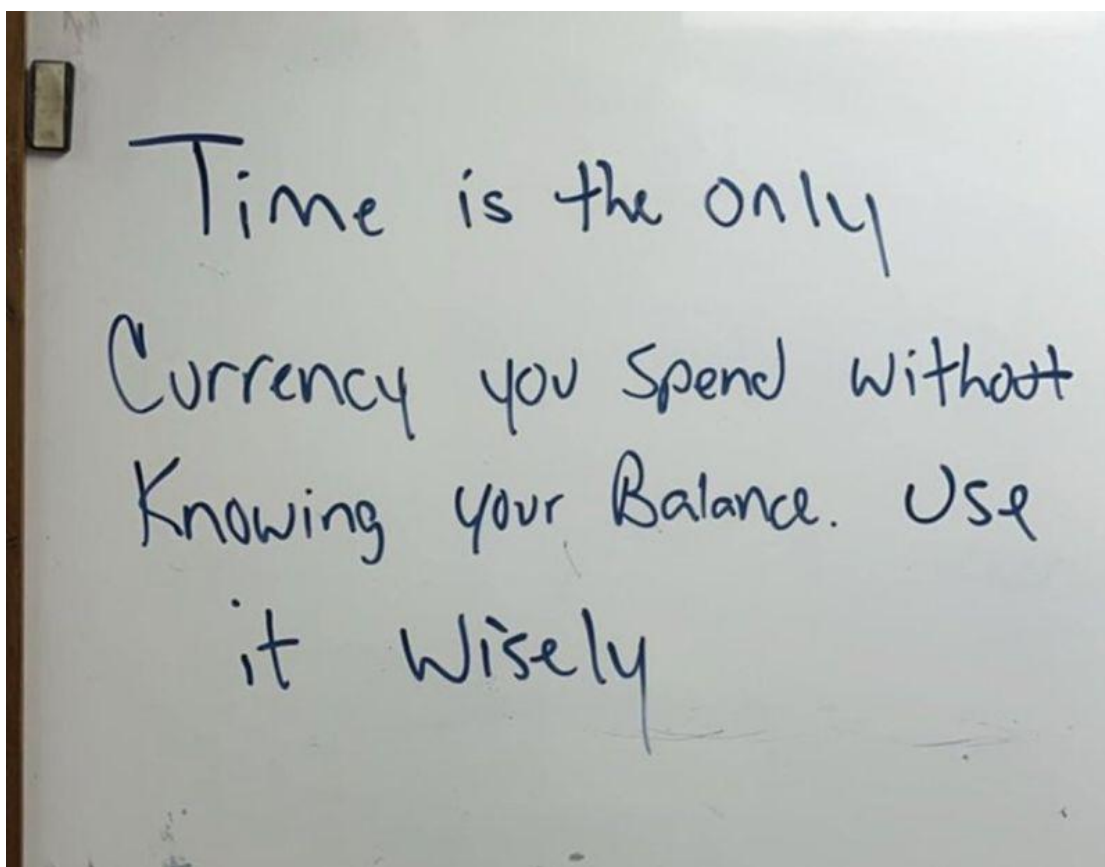 Time is the only
Currency you Spend without
Knowing your Balance. Use
it Wisely